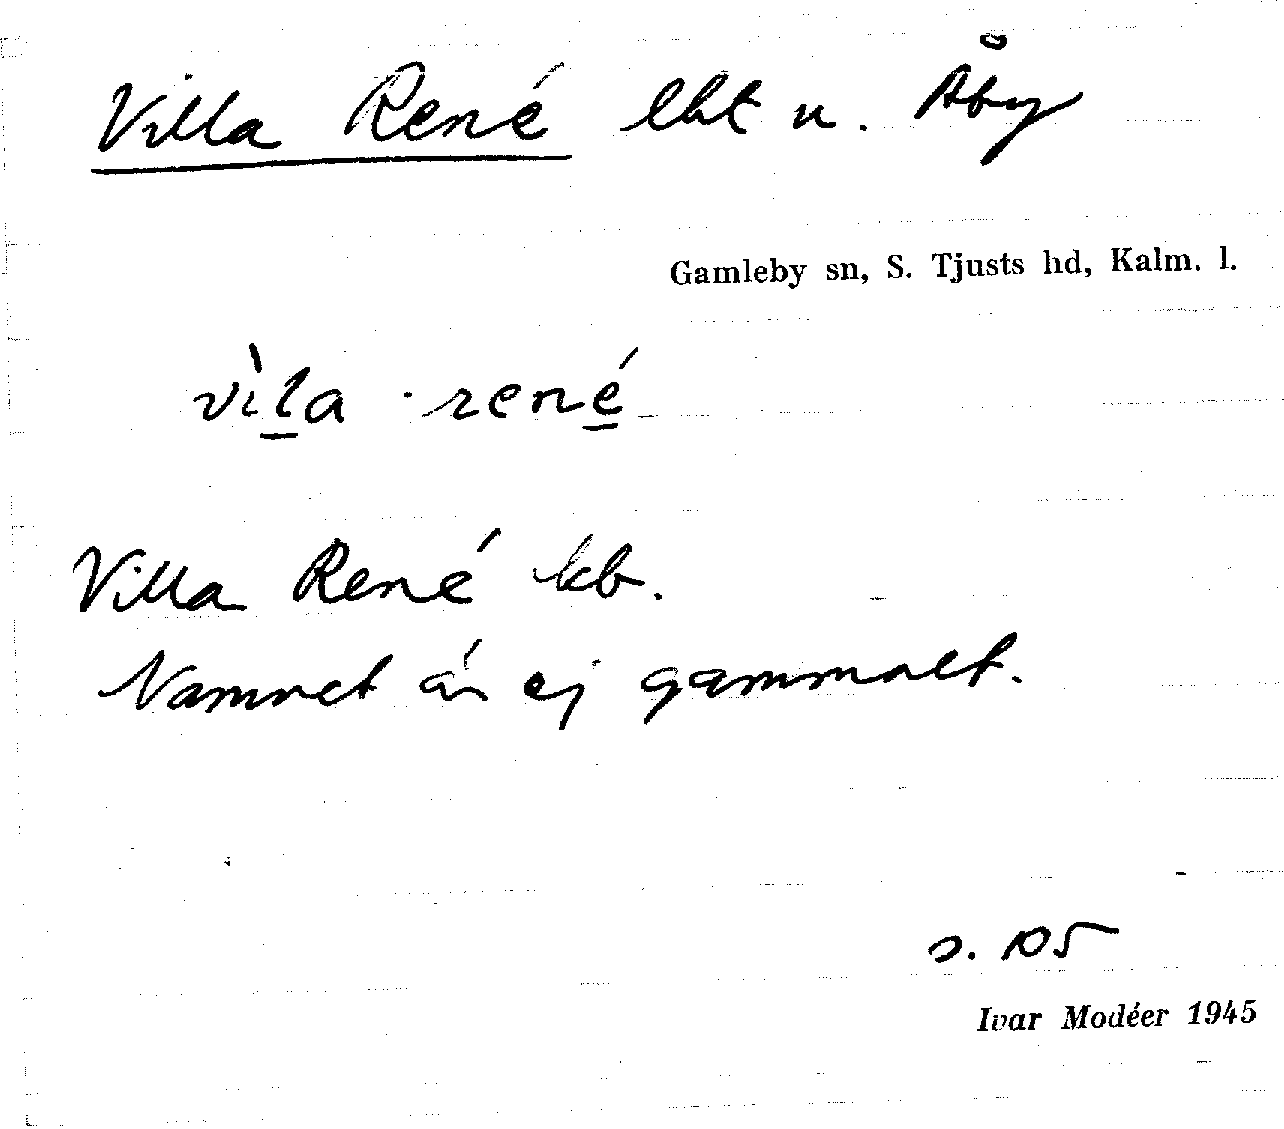 Villa René lht u. Åby
Gamleby sn, S. Tjusts hd, Kalm. l.
vìla ·rené
Villa René kb.
Namnet är ej gammalt.
s. 105
Ivar Modéer 1945